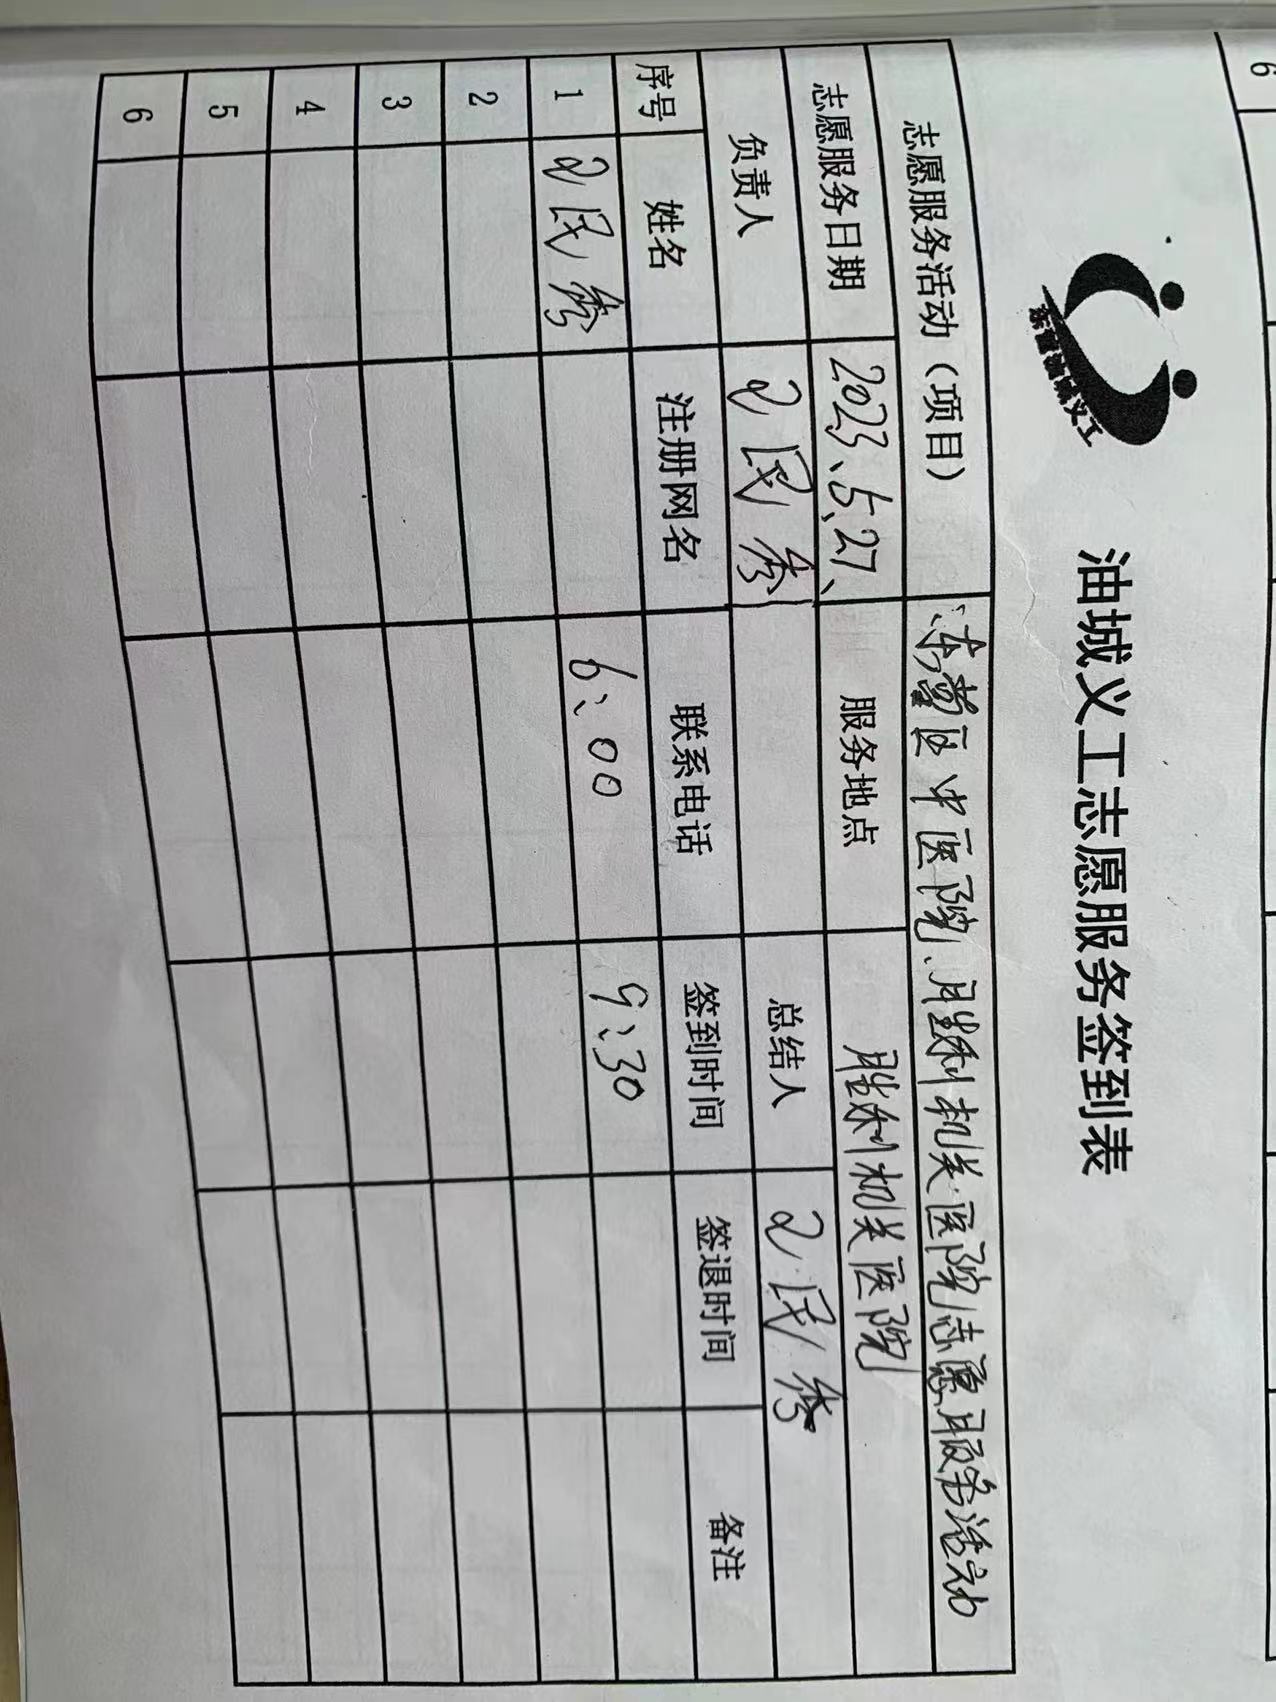 东营油城义工
油城义工志愿服务签到表
志愿服务活动（项目） 东营区中医院、胜利机关医院志愿服务活动
志愿服务日期 2023、5、27、 服务地点 胜利机关医院
负责人 民秀 总结人 民秀
序号 姓名 注册网名 联系电话 签到时间 签退时间 备注
1 民秀 6:00 9:30
2
3
4
5
6
6